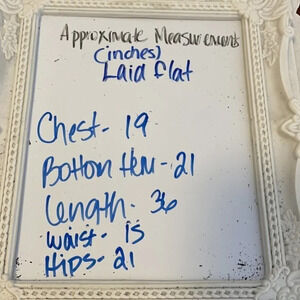 Approximate Measurements
(inches)
Laid flat
Chest- 19
Bottom Hem- 21
Length- 36
Waist- 15
Hips- 21